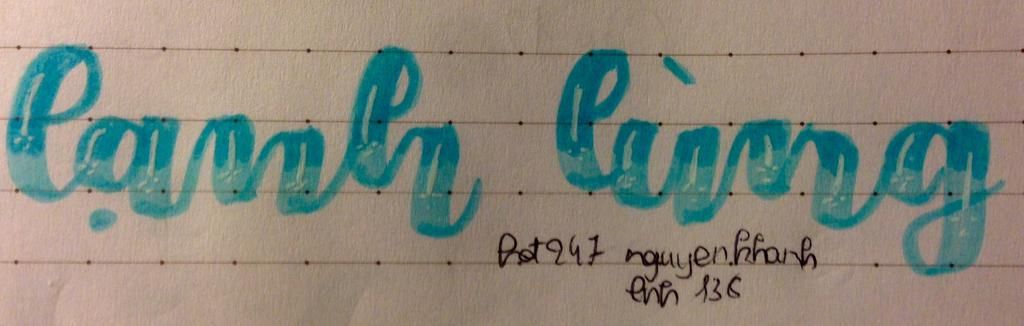 lạnh lùng
Post 247 nguyen.khanh
linh 136